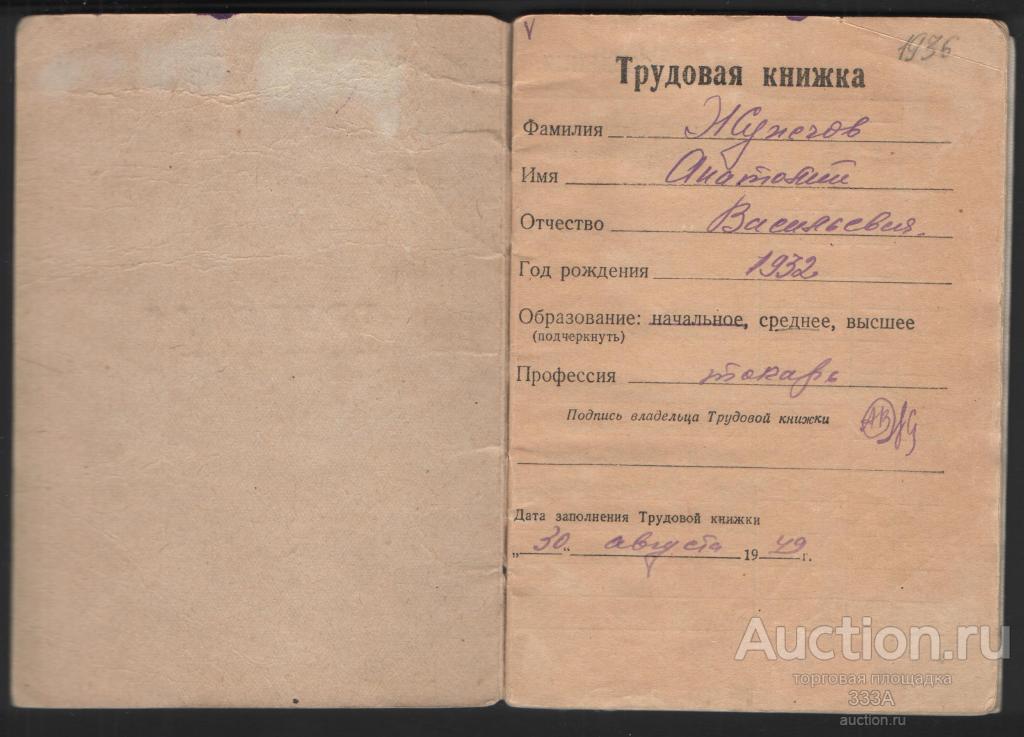 1936
Трудовая книжка
Фамилия
Имя Анатолий
Отчество Васильевич
Год рождения 1932
Образование: начальное, среднее, высшее
(подчеркнуть)
Профессия токарь
Подпись владельца Трудовой книжки
Дата заполнения Трудовой книжки
„30“ августа 1949 г.
Auction.ru
торговая площадка
333А
auction.ru